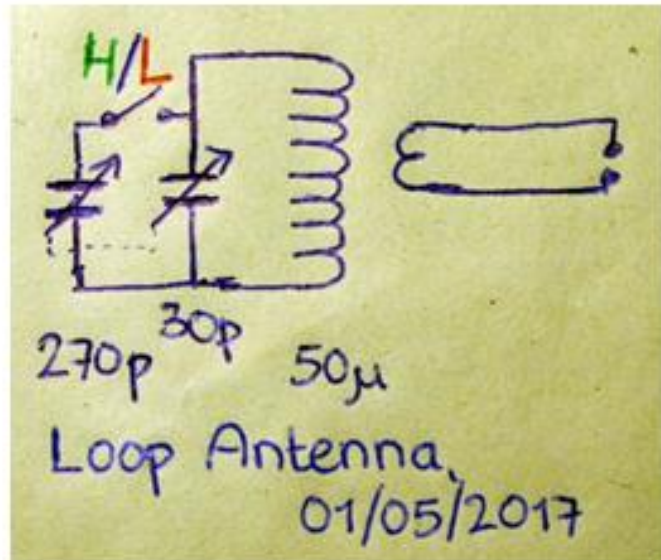 H/L
270p 30p 50μ
Loop Antenna,
01/05/2017